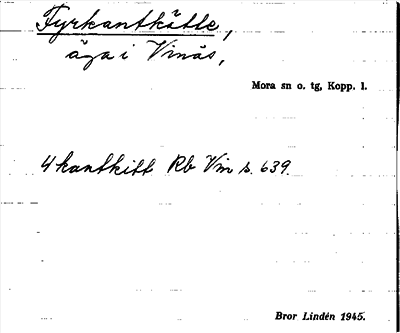 Fyrkantkätte,
äga i Vinäs,
Mora sn o. tg, Kopp. l.
4kantkitt Rb Vm s. 639.
Bror Lindén 1945.